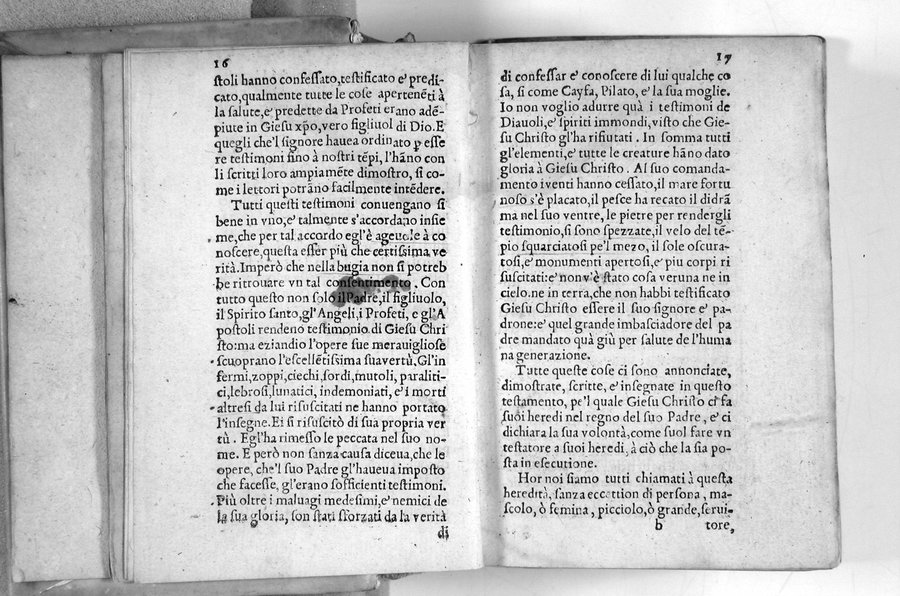 16
ſtoli hanno confeſſato,teſtificato e' predi-
cato,qualmente tutte le coſe apertenēti à
la ſalute,e' predette da Profeti erano adē-
piute in Gieſu xp̄o,vero figliuol di Dio.E
quegli che'l ſignore hauea ordinato ꝑ eſſe
re teſtimoni fino à noſtri tēpi, l'hāno con
li ſcritti loro ampiamēte dimoſtro, ſi co-
me i lettori potrāno facilmente intēdere.
Tutti queſti teſtimoni conuengano ſi
bene in vno,e' talmente s'accordano inſie
me,che per tal accordo egl'è ageuole à co
noſcere,queſta eſſer più che certiſſima ve
rità.Imperò che nella bugia non ſi potreb
be ritrouare vn tal conſentimento. Con
tutto queſto non ſolo il Padre,il figliuolo,
il Spirito ſanto,gl'Angeli,i Profeti, e gl'A
poſtoli rendeno teſtimonio di Gieſu Chri
ſto:ma eziandio l'opere ſue merauiglioſe
ſcuoprano l'eſcellētiſſima ſua vertù.Gl'in
fermi,zoppi,ciechi,ſordi,mutoli, paraliti-
ci,lebroſi,lunatici, indemoniati, e' i morti
altreſi da lui riſuſcitati ne hanno portato
l'inſegne.Ei ſi riſuſcitò di ſua propria ver
tù. Egl'ha rimeſſo le peccata nel ſuo no-
me. E però non ſanza cauſa diceua,che le
opere, che'l ſuo Padre gl'haueua impoſto
che faceſſe, gl'erano ſofficienti teſtimoni.
Più oltre i maluagi medeſimi,e' nemici de
la ſua gloria, ſon ſtati sforzati da la verità
di
17
di confeſſar e' conoſcere di lui qualche co
ſa, ſi come Cayfa, Pilato, e' la ſua moglie.
Io non voglio adurre quà i teſtimoni de
Diauoli, e' ſpiriti immondi, viſto che Gie-
ſu Chriſto gl'ha rifiutati. In ſomma tutti
gl'elementi,e' tutte le creature hāno dato
gloria à Gieſu Chriſto. Al ſuo comanda-
mento i venti hanno ceſſato,il mare fortu
noſo s'è placato,il peſce ha recato il didrā
ma nel ſuo ventre, le pietre per rendergli
teſtimonio,ſi ſono ſpezzate,il velo del tē-
pio ſquarciatoſi pe'l mezo, il ſole oſcura-
toſi,e' monumenti apertoſi,e' piu corpi ri
ſuſcitati:e' non v'è ſtato coſa veruna ne in
cielo.ne in terra,che non habbi teſtificato
Gieſu Chriſto eſſere il ſuo ſignore e' pa-
drone:e' quel grande imbaſciadore del pa
dre mandato quà giù per ſalute de l'huma
na generazione.
Tutte queſte coſe ci ſono annonciate,
dimoſtrate, ſcritte, e' inſegnate in queſto
teſtamento, pe'l quale Gieſu Chriſto ci fa
ſuoi heredi nel regno del ſuo Padre, e' ci
dichiara la ſua volontà,come ſuol fare vn
teſtatore a ſuoi heredi, à ciò che la ſia po-
ſta in eſecutione.
Hor noi ſiamo tutti chiamati à queſta
heredità, ſanza eccettion di perſona, ma-
ſcolo, ò femina, picciolo, ò grande, ſerui-
b tore,